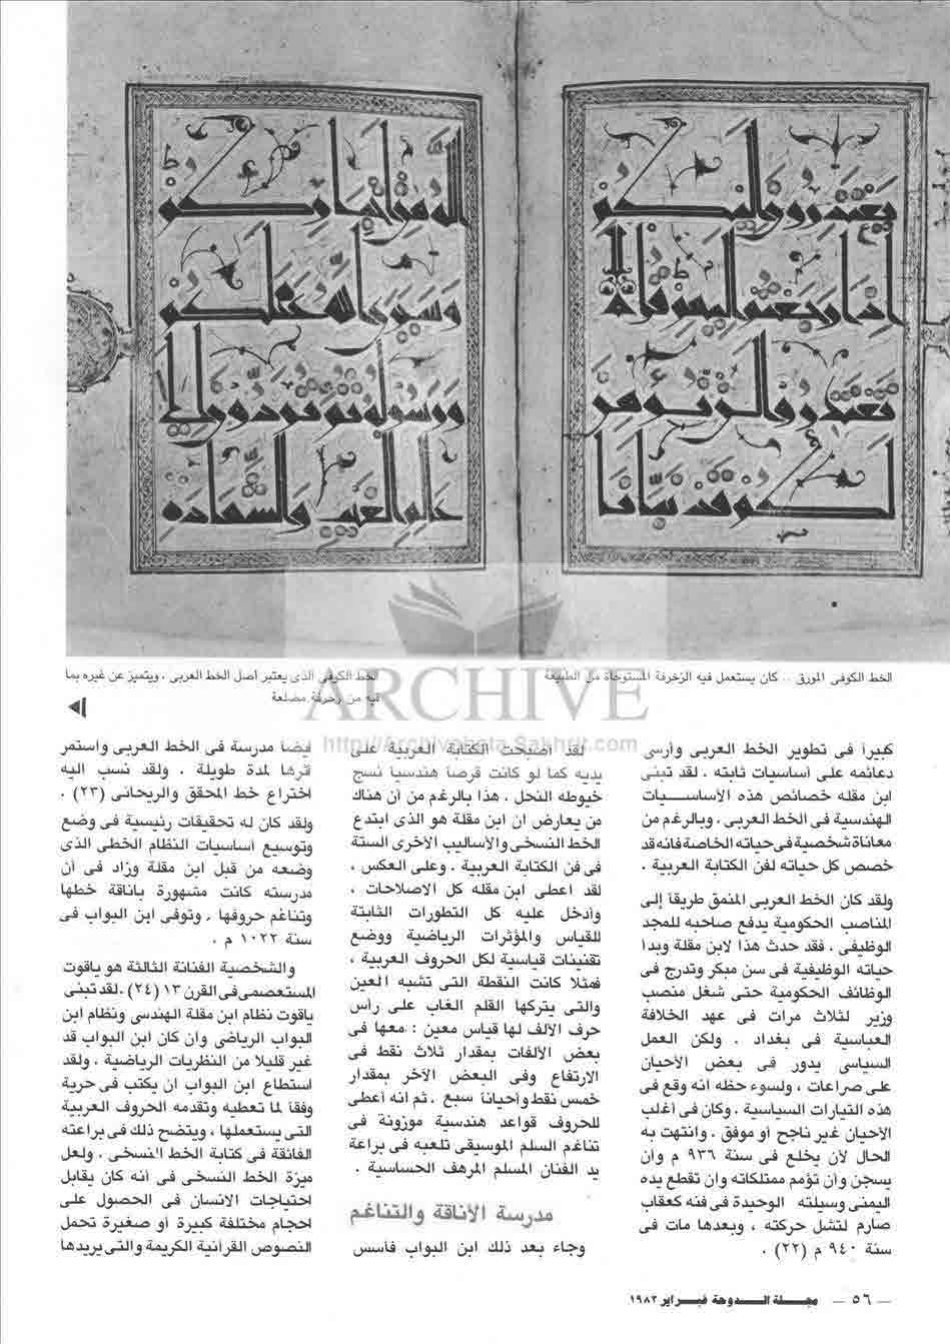 يعتذرون إليكم
إذا رجعتم إليهم قل لا
تعتذروا لن نؤمن
لكم قد نبأنا
الله من أخباركم
وسيرى الله عملكم
ورسوله ثم تردون إلى
عالم الغيب والشهادة
الخط الكوفى المورق .. كان يستعمل فيه الزخرفة المستوحاة من الطبيعة
الخط الكوفى الذى يعتبر أصل الخط العربى ، ويتميز عن غيره بما
فيه من زخرفة مضلعة
ARCHIVE
http://Archivebeta.Sakhrit.com
كبيرا فى تطوير الخط العربى وأرسى
دعائمه على أساسيات ثابته . لقد تبنى
ابن مقله خصائص هذه الأساسـيات
الهندسية فى الخط العربى . وبالرغم من
معاناة شخصية فى حياته الخاصة فانه قد
خصص كل حياته لفن الكتابة العربية .
ولقد كان الخط العربى المنمق طريقا إلى
المناصب الحكومية يدفع صاحبه للمجد
الوظيفى . فقد حدث هذا لابن مقلة وبدأ
حياته الوظيفية فى سن مبكر وتدرج فى
الوظائف الحكومية حتى شغل منصب
وزير لثلاث مرات فى عهد الخلافة
العباسية فى بغداد . ولكن العمل
السياسى يدور فى بعض الأحيان
على صراعات ، ولسوء حظه انه وقع فى
هذه التيارات السياسية . وكان فى أغلب
الأحيان غير ناجح أو موفق . وانتهت به
الحال لأن يخلع فى سنة ٩٣٦ م وأن
يسجن وأن تؤمم ممتلكاته وان تقطع يده
اليمنى وسيلته الوحيدة فى فنه كعقاب
صارم لتشل حركته ، وبعدها مات فى
سنة ٩٤٠ م (٢٢) .
لقد أضبحت الكتابة العربية على
يديه كما لو كانت قرصا هندسيا نسج
خيوطه النحل . هذا بالرغم من أن هناك
من يعارض ان ابن مقلة هو الذى ابتدع
الخط النسخى والأساليب الأخرى الستة
فى فن الكتابة العربية . وعلى العكس ،
لقد اعطى ابن مقله كل الاصلاحات ،
وأدخل عليه كل التطورات الثابتة
للقياس والمؤثرات الرياضية ووضع
تقنينات قياسية لكل الحروف العربية ،
فمثلا كانت النقطة التى تشبه العين
والتى يتركها القلم الغاب على رأس
حرف الألف لها قياس معين : معها فى
بعض الألفات بمقدار ثلاث نقط فى
الارتفاع وفى البعض الآخر بمقدار
خمس نقط وأحيانا سبع . ثم انه أعطى
للحروف قواعد هندسية موزونة فى
تناغم السلم الموسيقى تلعبه فى براعة
يد الفنان المسلم المرهف الحساسية .
مدرسة الأناقة والتناغم
وجاء بعد ذلك ابن البواب فأسس
أيضا مدرسة فى الخط العربى واستمر
أثرها لمدة طويلة . ولقد نسب اليه
اختراع خط المحقق والريحانى (٢٣) .
ولقد كان له تحقيقات رئيسية فى وضع
وتوسيع أساسيات النظام الخطى الذى
وضعه من قبل ابن مقلة وزاد فى أن
مدرسته كانت مشهورة باناقة خطها
وتناغم حروفها . وتوفى ابن البواب فى
سنة ١٠٢٢ م .
والشخصية الفنانة الثالثة هو ياقوت
المستعصمى فى القرن ١٣ (٢٤) . لقد تبنى
ياقوت نظام ابن مقلة الهندسى ونظام ابن
البواب الرياضى وان كان ابن البواب قد
غير قليلا من النظريات الرياضية . ولقد
استطاع ابن البواب ان يكتب فى حرية
وفقا لما تعطيه وتقدمه الحروف العربية
التى يستعملها ، ويتضح ذلك فى براعته
الفائقة فى كتابة الخط النسخى . ولعل
ميزة الخط النسخى فى أنه كان يقابل
احتياجات الانسان فى الحصول على
احجام مختلفة كبيرة أو صغيرة تحمل
النصوص القرآنية الكريمة والتى يريدها
— ٥٦ — مجـــلة الـــدوحة فبـراير ١٩٨٢